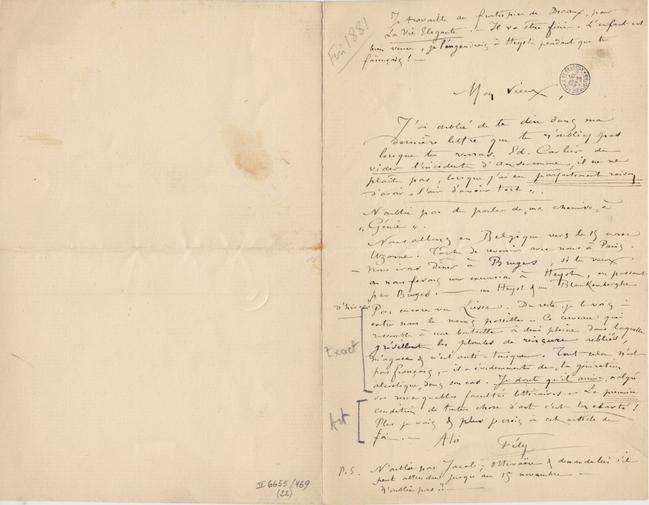 Fin 1881
Je travaille au frontispice de Decaux, pour
La Vie Elegante. – Il va être fini. L'enfant est
bien venu, je l'engendrais à Heyst pendant que tu
Mon Vieux,
J'ai oublié de te dire dans ma
dernière lettre que tu n'oublies pas
lorsque tu verras Ed. Carlier de
vider l'incident d'Andenne, il ne me
plait pas, lorsque j'ai eu parfaitement raison
d'avoir « l'air d'avoir tort ».
N'oublie pas de parler de ma chemise à
« Génie ».
Nous allons en Belgique vers le 15 avec
Uzanne. Tâche de revenir avec nous à Paris.
– Nous irons dîner à Bruges, si tu veux
ou nous ferons une excursion à Heyst, en passant
par Bruges. – en Heyst & en Blankenberghe
d'hiver
Pas encore vu Liesse. Du reste, je le vois
entre nous le moins possible. Ce cerveau qui
ressemble à une bouteille à demi pleine dans laquelle
grésillent les plombs de rinçure oubliés,
m'agace & n'est
pas français, – il a évidemment de la génération
alcoolique dans son cas. Je doute qu'il arrive, malgré
ses remarquables facultés littéraires. – La première
condition de toute chose d'art c'est la clarté!
Plus je vais & plus je crois à cet article de
foi. – A toi
Fély
Exact
Art
P.S. N'oublie pas Jacob, & demande lui s'il
peut attendre jusqu'au 15 novembre –
N'oublie pas!!
II 6655/469
(22)